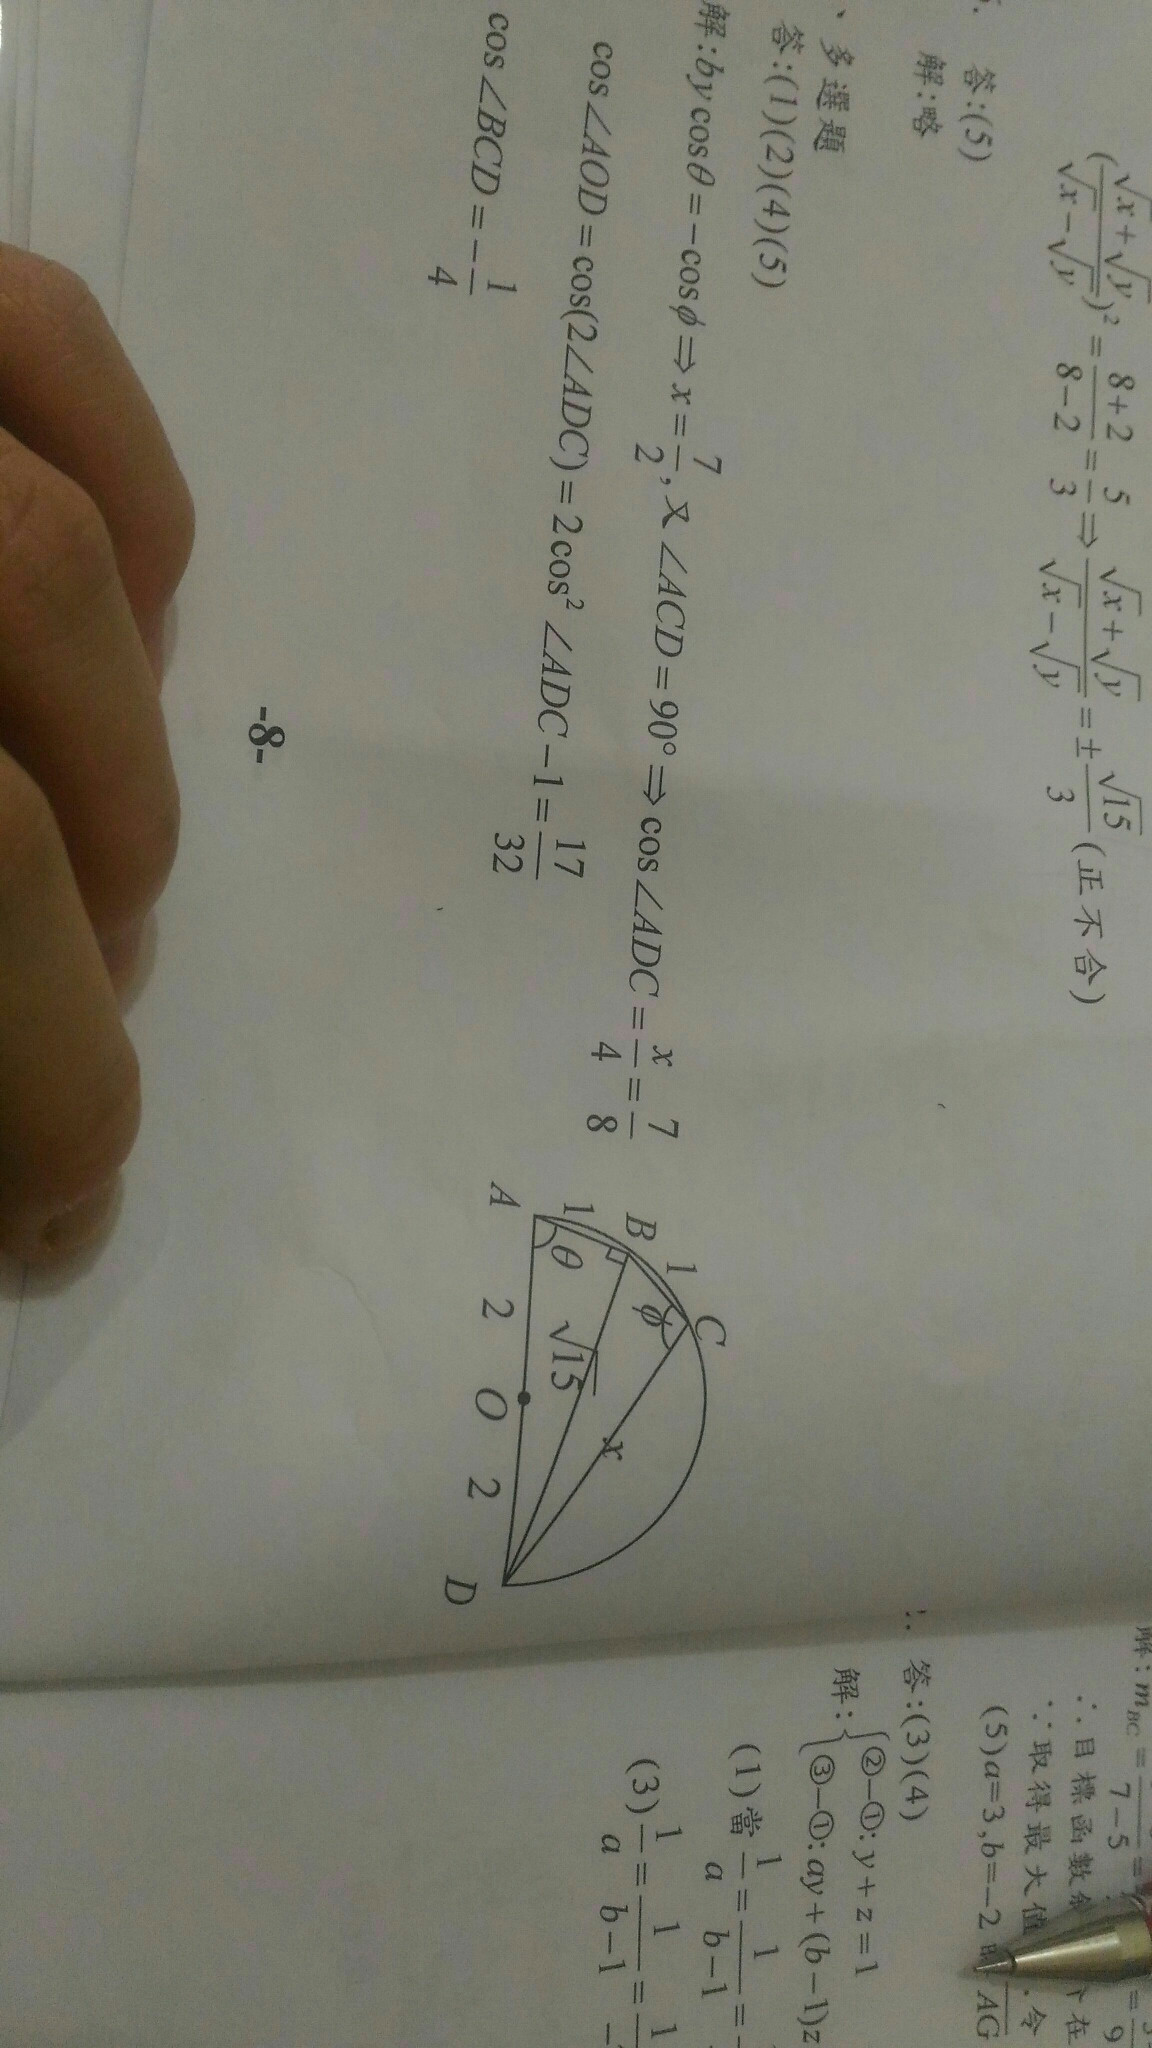 (\frac{\sqrt{x}+\sqrt{y}}{\sqrt{x}-\sqrt{y}})^2=\frac{8+2}{8-2}=\frac{5}{3}⇒\frac{\sqrt{x}+\sqrt{y}}{\sqrt{x}-\sqrt{y}}=±\frac{\sqrt{15}}{3}(正不合)
答:(5)
解:略
、多選題
答:(1)(2)(4)(5)
解:by cosθ=-cosϕ⇒x=\frac{7}{2},又∠ACD=90°⇒cos∠ADC=\frac{x}{4}=\frac{7}{8}
cos∠AOD=cos(2∠ADC)=2cos²∠ADC-1=\frac{17}{32}
cos∠BCD=-\frac{1}{4}
A
1
B
1
C
θ
ϕ
2
√15
x
O
2
D
-8-
解:m_{BC}=\frac{}{7-5}=
∴目標函數
在
∵取得最大值
令
(5)a=3,b=-2
AG
答:(3)(4)
解:{②-①:y+z=1
③-①:ay+(b-1)z
(1)當\frac{1}{a}=\frac{1}{b-1}=
(3)\frac{1}{a}=\frac{1}{b-1}=